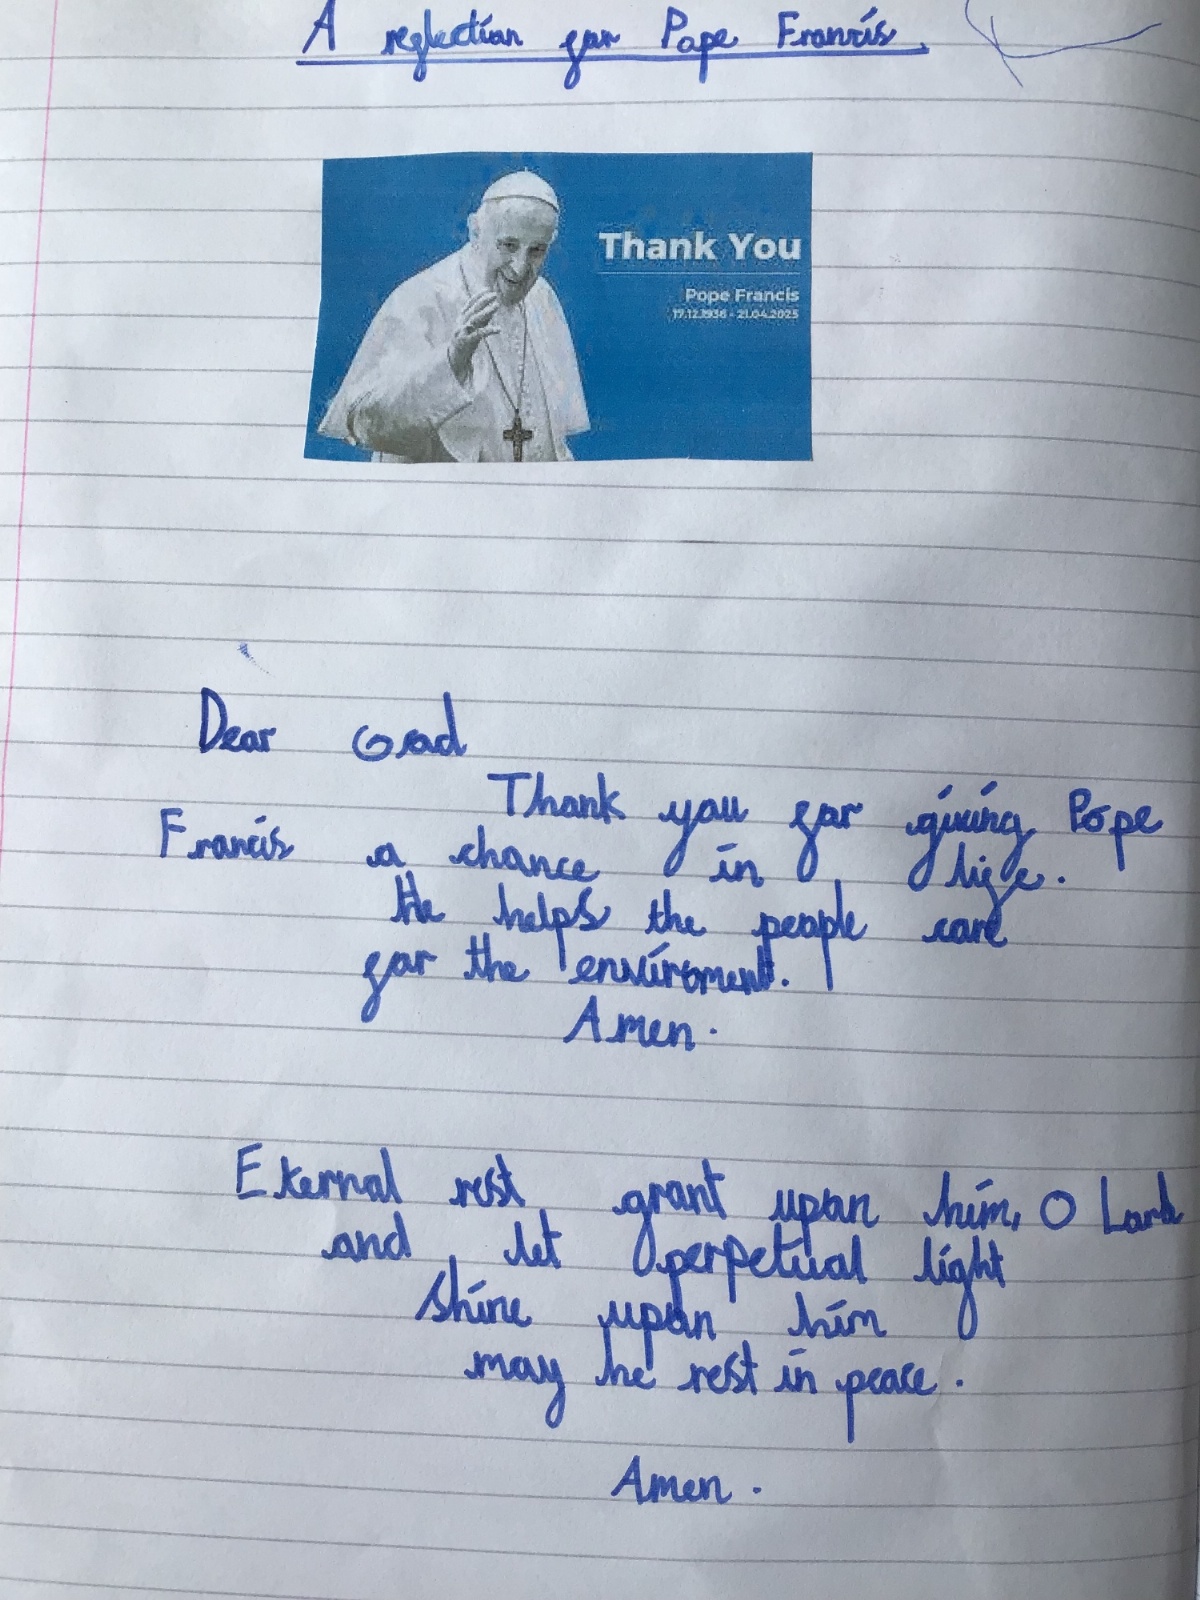 A reflection for Pope Francis.
Thank You
Pope Francis
17.12.1936 - 21.04.2025
Dear God
Thank you for giving Pope
Francis a chance in life.
He helps the people care
for the enviroment.
Amen.
Eternal rest grant upon him, O Lord
and let perpetual light
shine upon him
may he rest in peace.
Amen.